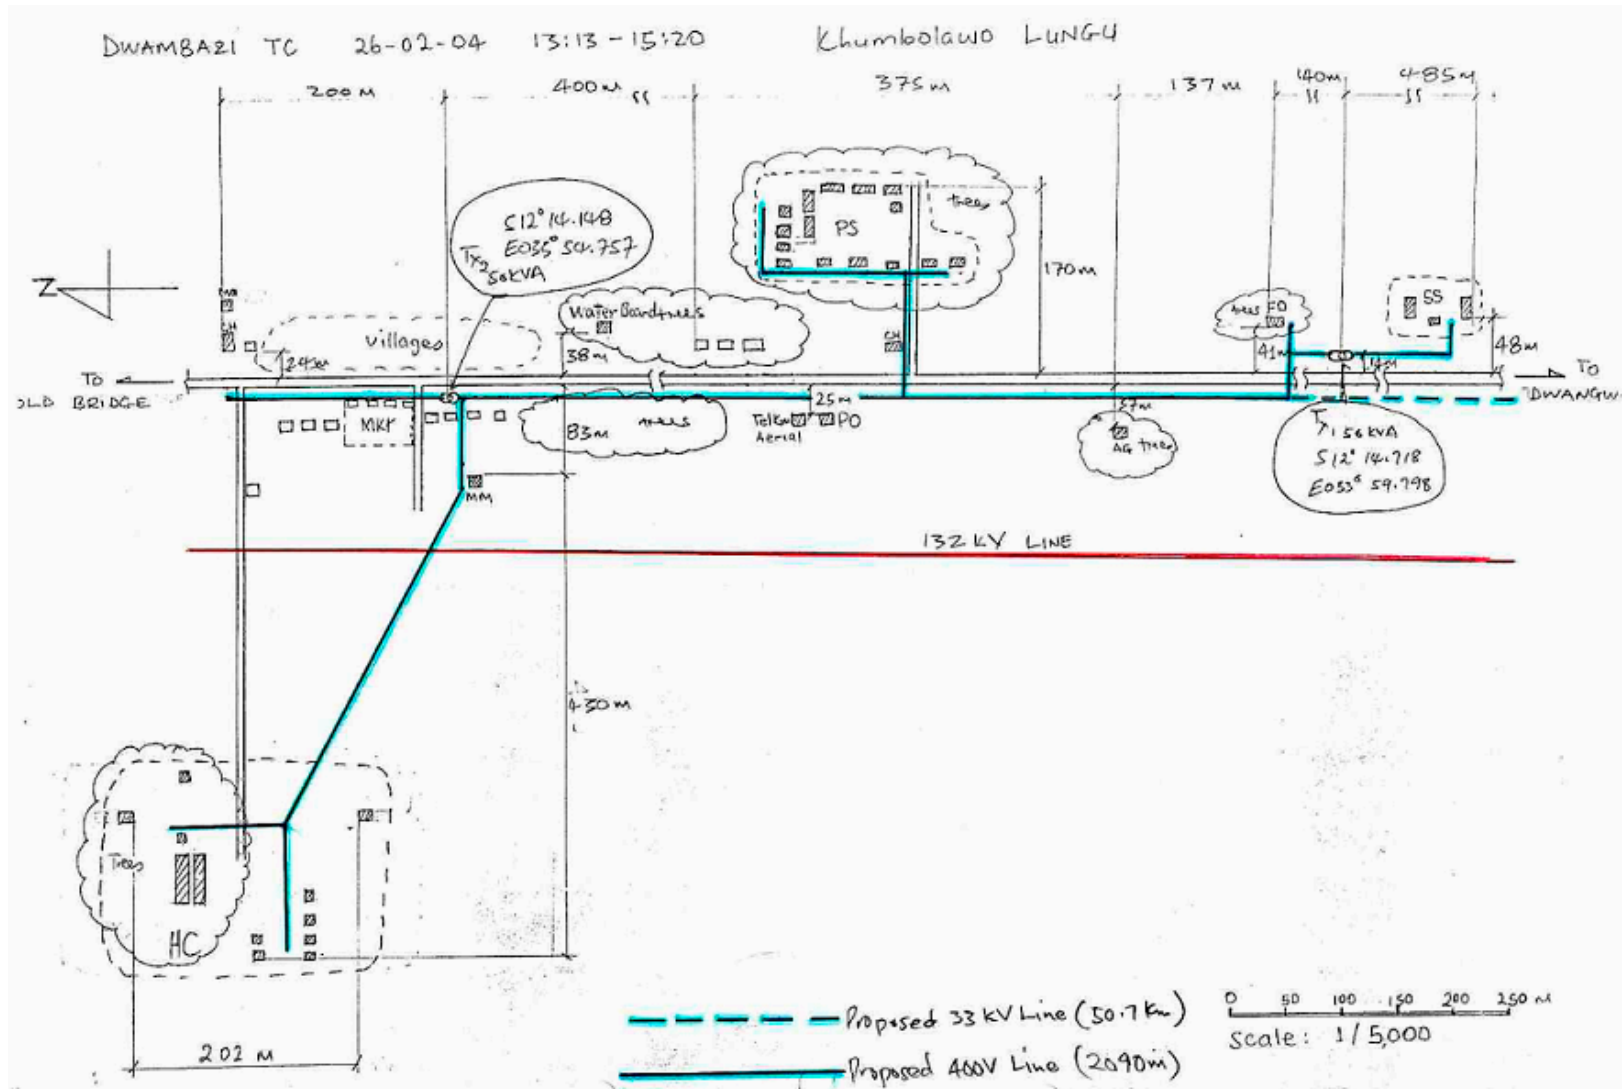 DWAMBAZI TC 26-02-04 13:13-15:20 Khumbolawo LUNGU
200 M 400 M 375 M 137 M 140M 485M
S12° 14.148
E033° 54.757
Tx2 50KVA
trees
PS
170m
Z
CH
Water Board trees
villages
24m
38m
CH
trees
SS
41m
14m
48m
TO
OLD BRIDGE
TO
DWANGW
25m
MKT
83m
trees
Telkom
Aerial
PO
37m
AG trees
MM
Tx1 50KVA
S12° 14.718
E033° 59.798
132 KV LINE
430m
Trees
HC
202 M
Proposed 33 kV Line (50.7 Km)
Proposed 400V Line (2090m)
0 50 100 150 200 250 M
Scale: 1/5,000